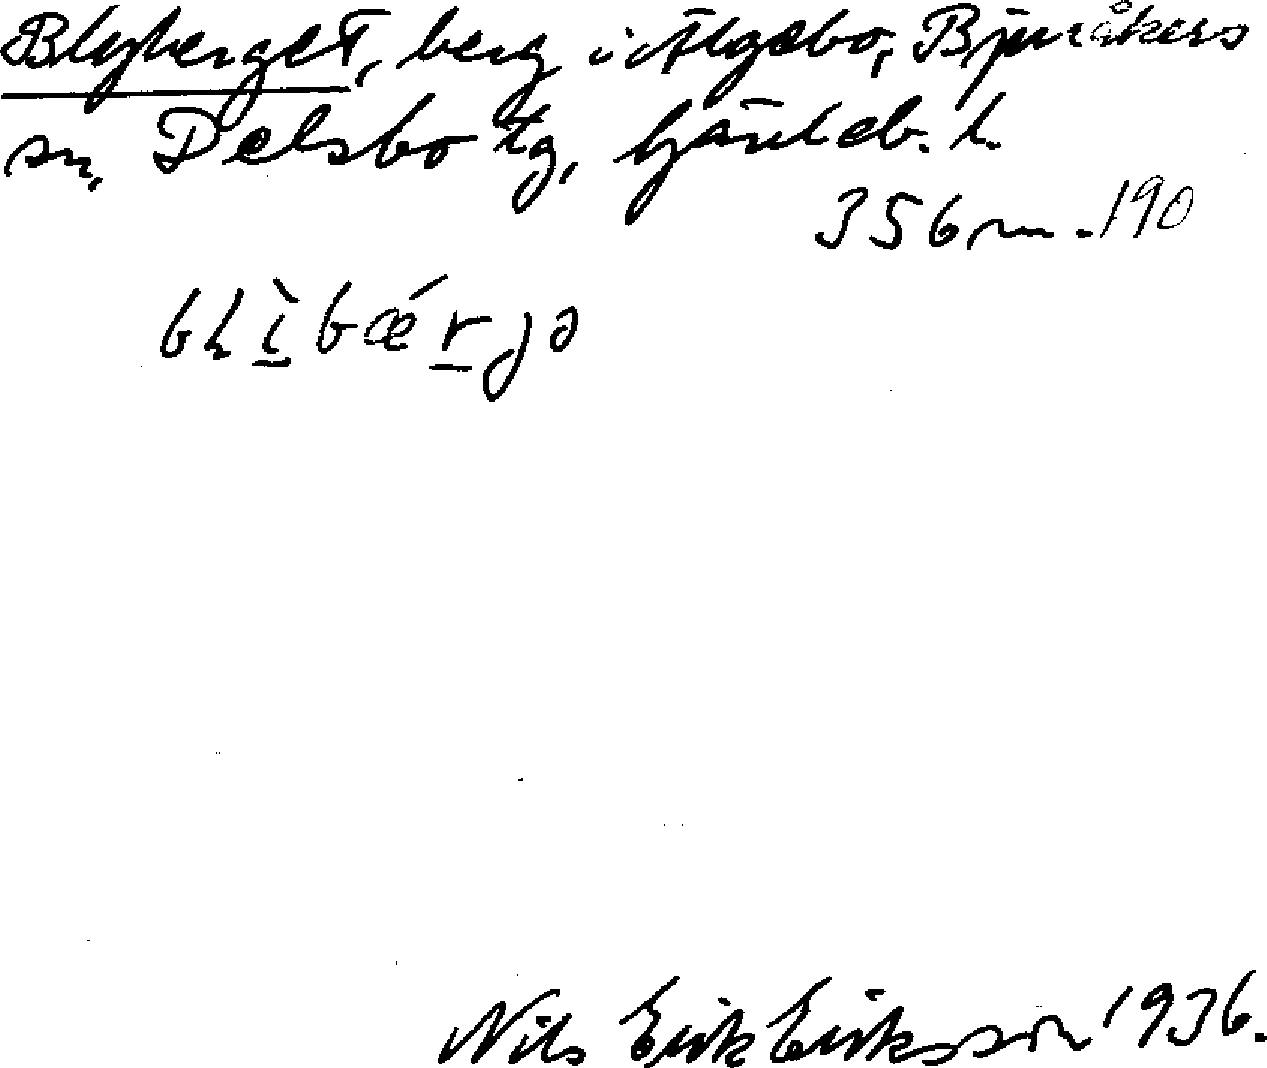 Blyberget, berg i Älgebo, Bjuråkers
sn, Delsbo tg, Gävleb. l.
356 m. 190
bḷìbǽrjə
Nils Erik Eriksson 1936.